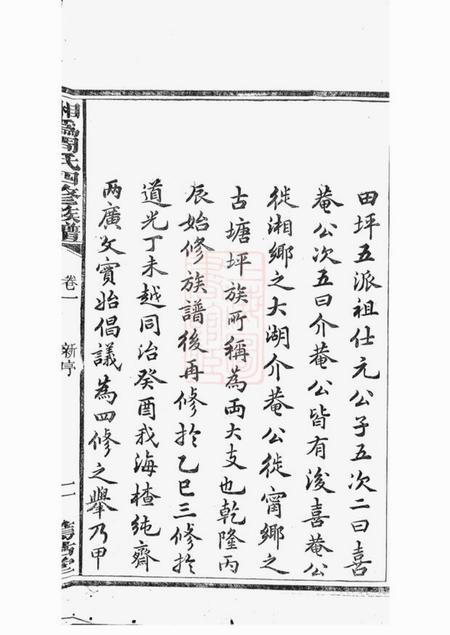 田坪五派祖仕元公子五次二曰喜
菴公次五曰介菴公皆有後喜菴公
徙湘鄉之大湖介菴公徙甯鄉之
古塘坪族所稱為両大支也乾隆丙
辰始修族譜後再修於乙巳三修於
道光丁未越同治癸酉我海楂純齋
両廣文實始倡議為四修之舉乃甲
湘鄉周氏四修族譜
卷一
新序
二